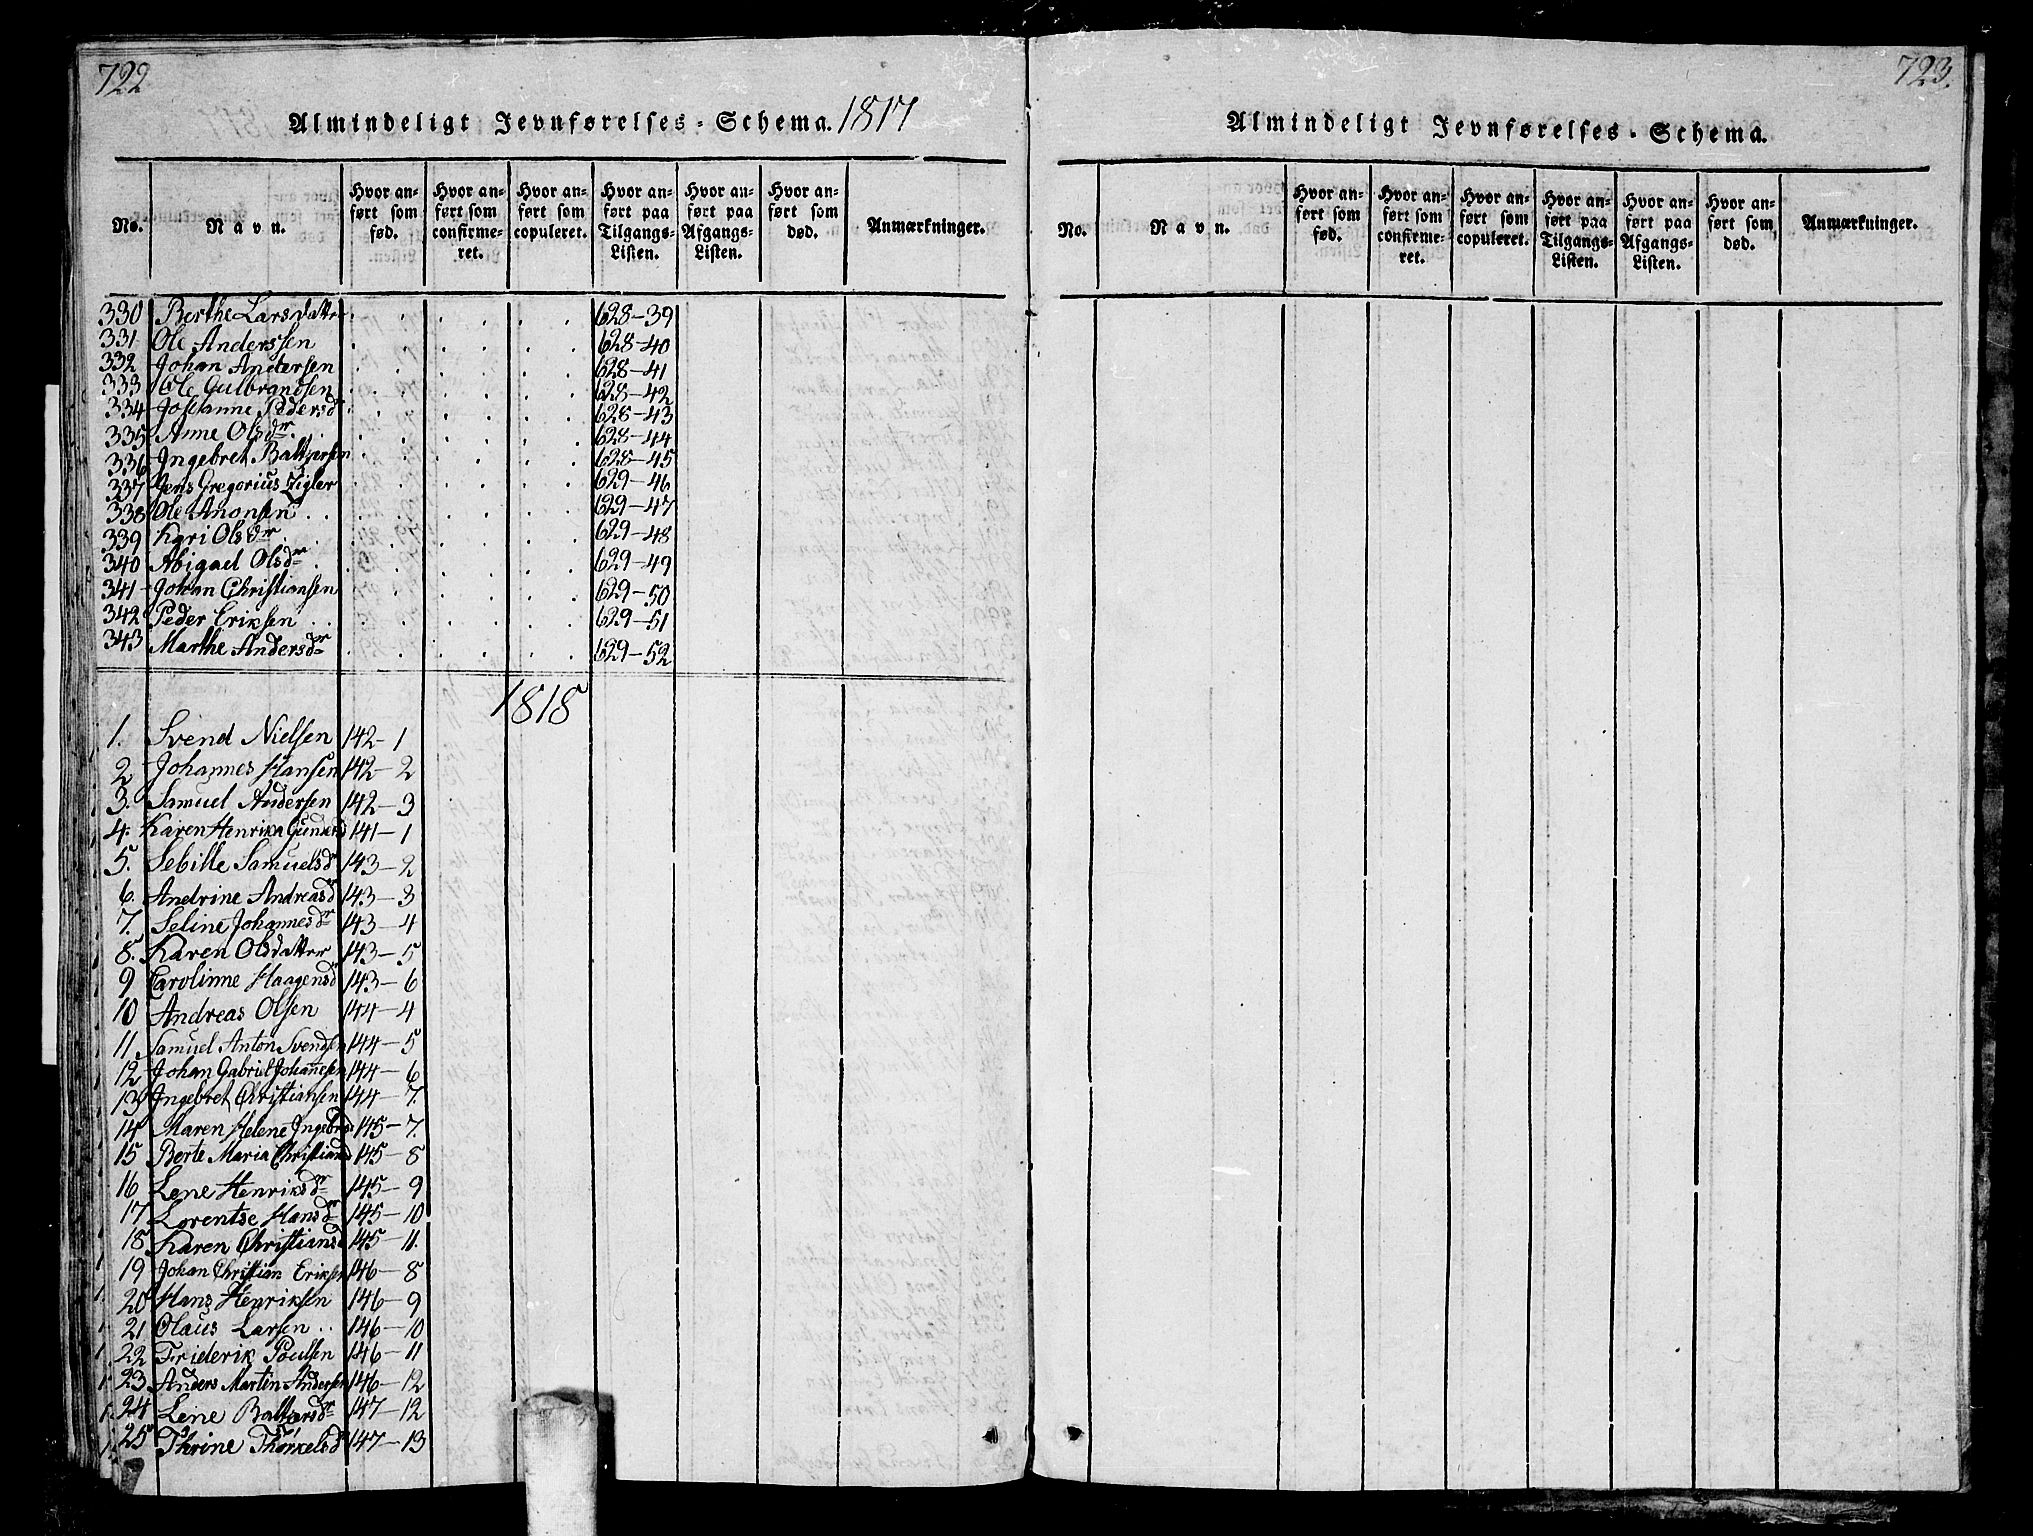 722
Almindeligt Jevnførelses-Schema. 1817
No. Navn. Hvor anført som fød. Hvor anført som confirmeret. Hvor anført som copuleret. Hvor anført paa Tilgangs-Listen. Hvor anført paa Afgangs-Listen. Hvor anført som død. Anmærkninger.
330 Berthe Larsdatter 628-39
331 Ole Anderssen 628-40
332 Johan Andersen 628-41
333 Ole Gulbrandsen 628-42
334 Johanne Pedersdr 628-43
335 Anne Olsdr 628-44
336 Ingebret Baltzersen 628-45
337 Jens Gregorius Zigler 629-46
338 Ole Anonsen 629-47
339 Kari Olsdr 629-48
340 Abigael Olsdr 629-49
341 Johan Christiansen 629-50
342 Peder Eriksen 629-51
343 Marthe Andersdr 629-52
1818
1. Svend Nielsen 142-1
2 Johannes Hansen 142-2
3. Samuel Andersen 142-3
4. Karen Henrika 141-1
5. Sebille Samuelsdr 143-2
6. Andrine Andreasd 143-3
7. Seline Johannesdr 143-4
8. Karen Olsdatter 143-5
9 Carolinne Haagensd 143-6
10 Andreas Olsen 144-4
11 Samuel Anton Svendsen 144-5
12 Johan Gabriel Johannesen 144-6
13 Ingebret Christiansen 144-7.
14 Maren Helene Ingebrd 145-7.
15 Berte Maria Christiansd 145-8
16 Lene Henriksdr 145-9
17 Lorentse Hansdr 145-10
18 Karen Christiansd 145-11.
19 Johan Christian Eriksen 146-8
20 Hans Henriksen 146-9
21 Olaus Larsen 146-10
22 Friderik Poulsen 146-11
23 Anders Martin Andersen 146-12
24 Lene Baltzersdr 147-12
25 Thrine Thorkelsd 147-13
723.
Almindeligt Jevnførelses-Schema.
No. Navn. Hvor anført som fød. Hvor anført som confirmeret. Hvor anført som copuleret. Hvor anført paa Tilgangs-Listen. Hvor anført paa Afgangs-Listen. Hvor anført som død. Anmærkninger.